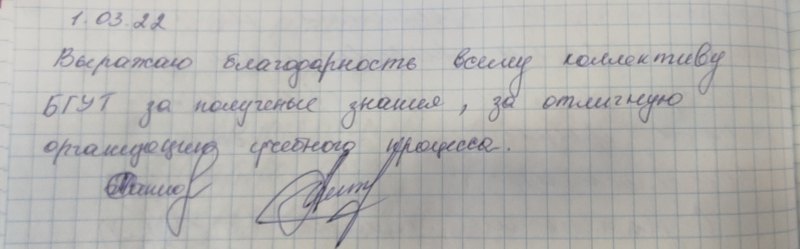 1.03.22
Выражаю благодарность всему коллективу
БГУТ за полученые знания, за отличную
организацию учебного процесса.